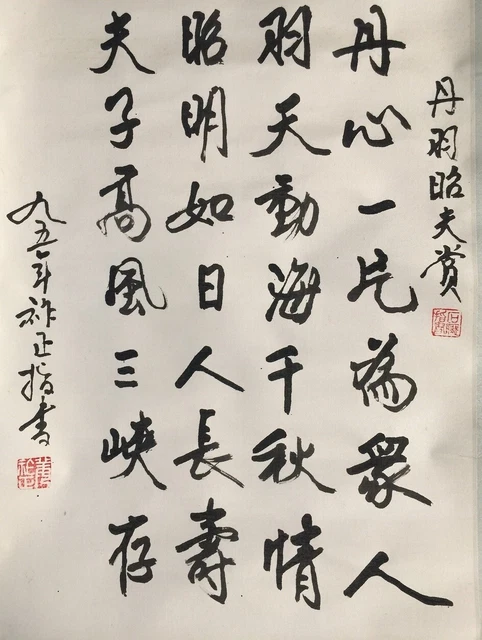 丹羽昭夫赏
丹心一片為衆人
羽天動海千秋情
昭明如日人長壽
夫子高風三峽存
九五年祚正指書